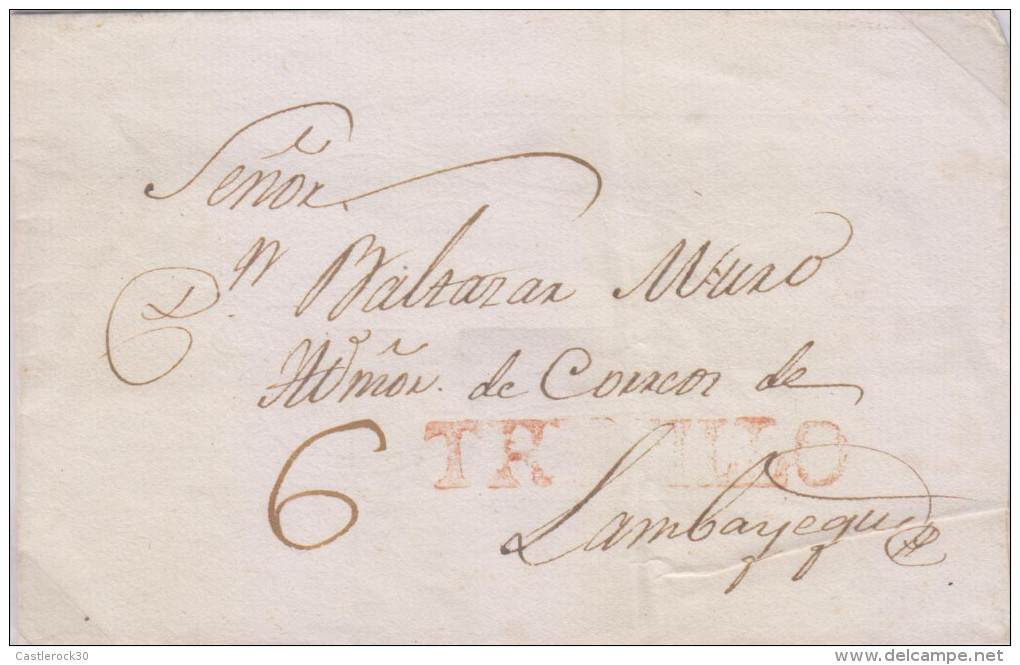 Señor
Dn Baltazar Muro
Admõr. de Correos de
6 TRUXILLO
Lambayeque
Castlerock30
www.delcampe.net